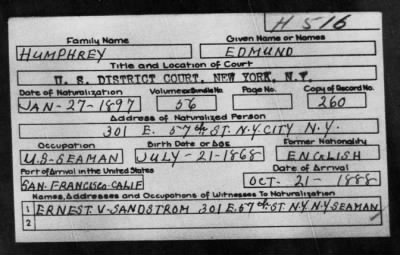 H 516
Family Name Given Name or Names
HUMPHREY EDMUND
Title and Location of Court
U. S. DISTRICT COURT, NEW YORK, N.Y.
Date of Naturalization Volume or Bundle No. Page No. Copy of Record No.
JAN-27-1897 56 260
Address of Naturalized Person
301 E. 57th ST. N.Y. CITY N.Y.
Occupation Birth Date or Age Former Nationality
U.S-SEAMAN JULY-21-1868 ENGLISH
Port of Arrival in the United States Date of Arrival
SAN. FRANCISCO-CALIF OCT. 21-1888
Names, Addresses and Occupations of Witnesses To Naturalization
1 ERNEST V-SANDSTROM 301 E. 57th ST. N.Y. N.Y SEAMAN
2